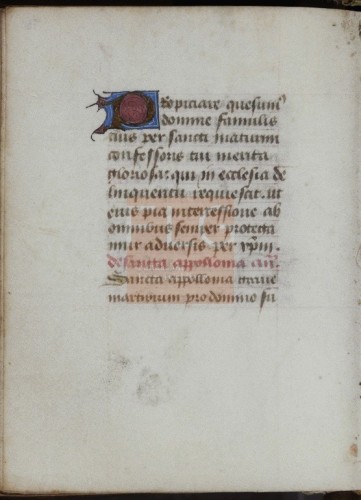 Propiciare quesumꝰ
domine famulis
tuis per sancti maturini
confessoris tui merita
gloriosa: qui in ecclesia de
linquentiu requiescit. ut
eius pia intercessione ab
omnibus semper protega
mur adversis per xp̅m.
de sancta appollonia an̅.
Sancta appollonia grave
martirium pro domino su